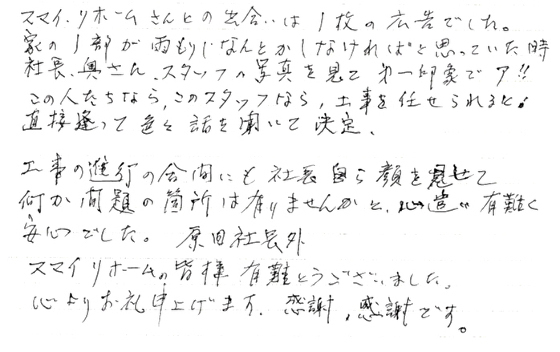 スマイ.リホームさんとの出会いは1枚の広告でした。
家の1部が雨もりしなんとかしなければと思っていた時
社長、奥さん、スタッフの写真を見て第一印象でア!!
この人たちなら、このスタッフなら、工事を任せられると!
直接逢って色々話を聞いて決定、
工事の進行の合間にも社長自ら顔を見せて
何か問題の箇所は有りませんかと、心遣い有難く
安心でした。 原田社長外
スマイリホームの皆様有難とうございました。
心よりお礼申上げます、感謝、感謝です。